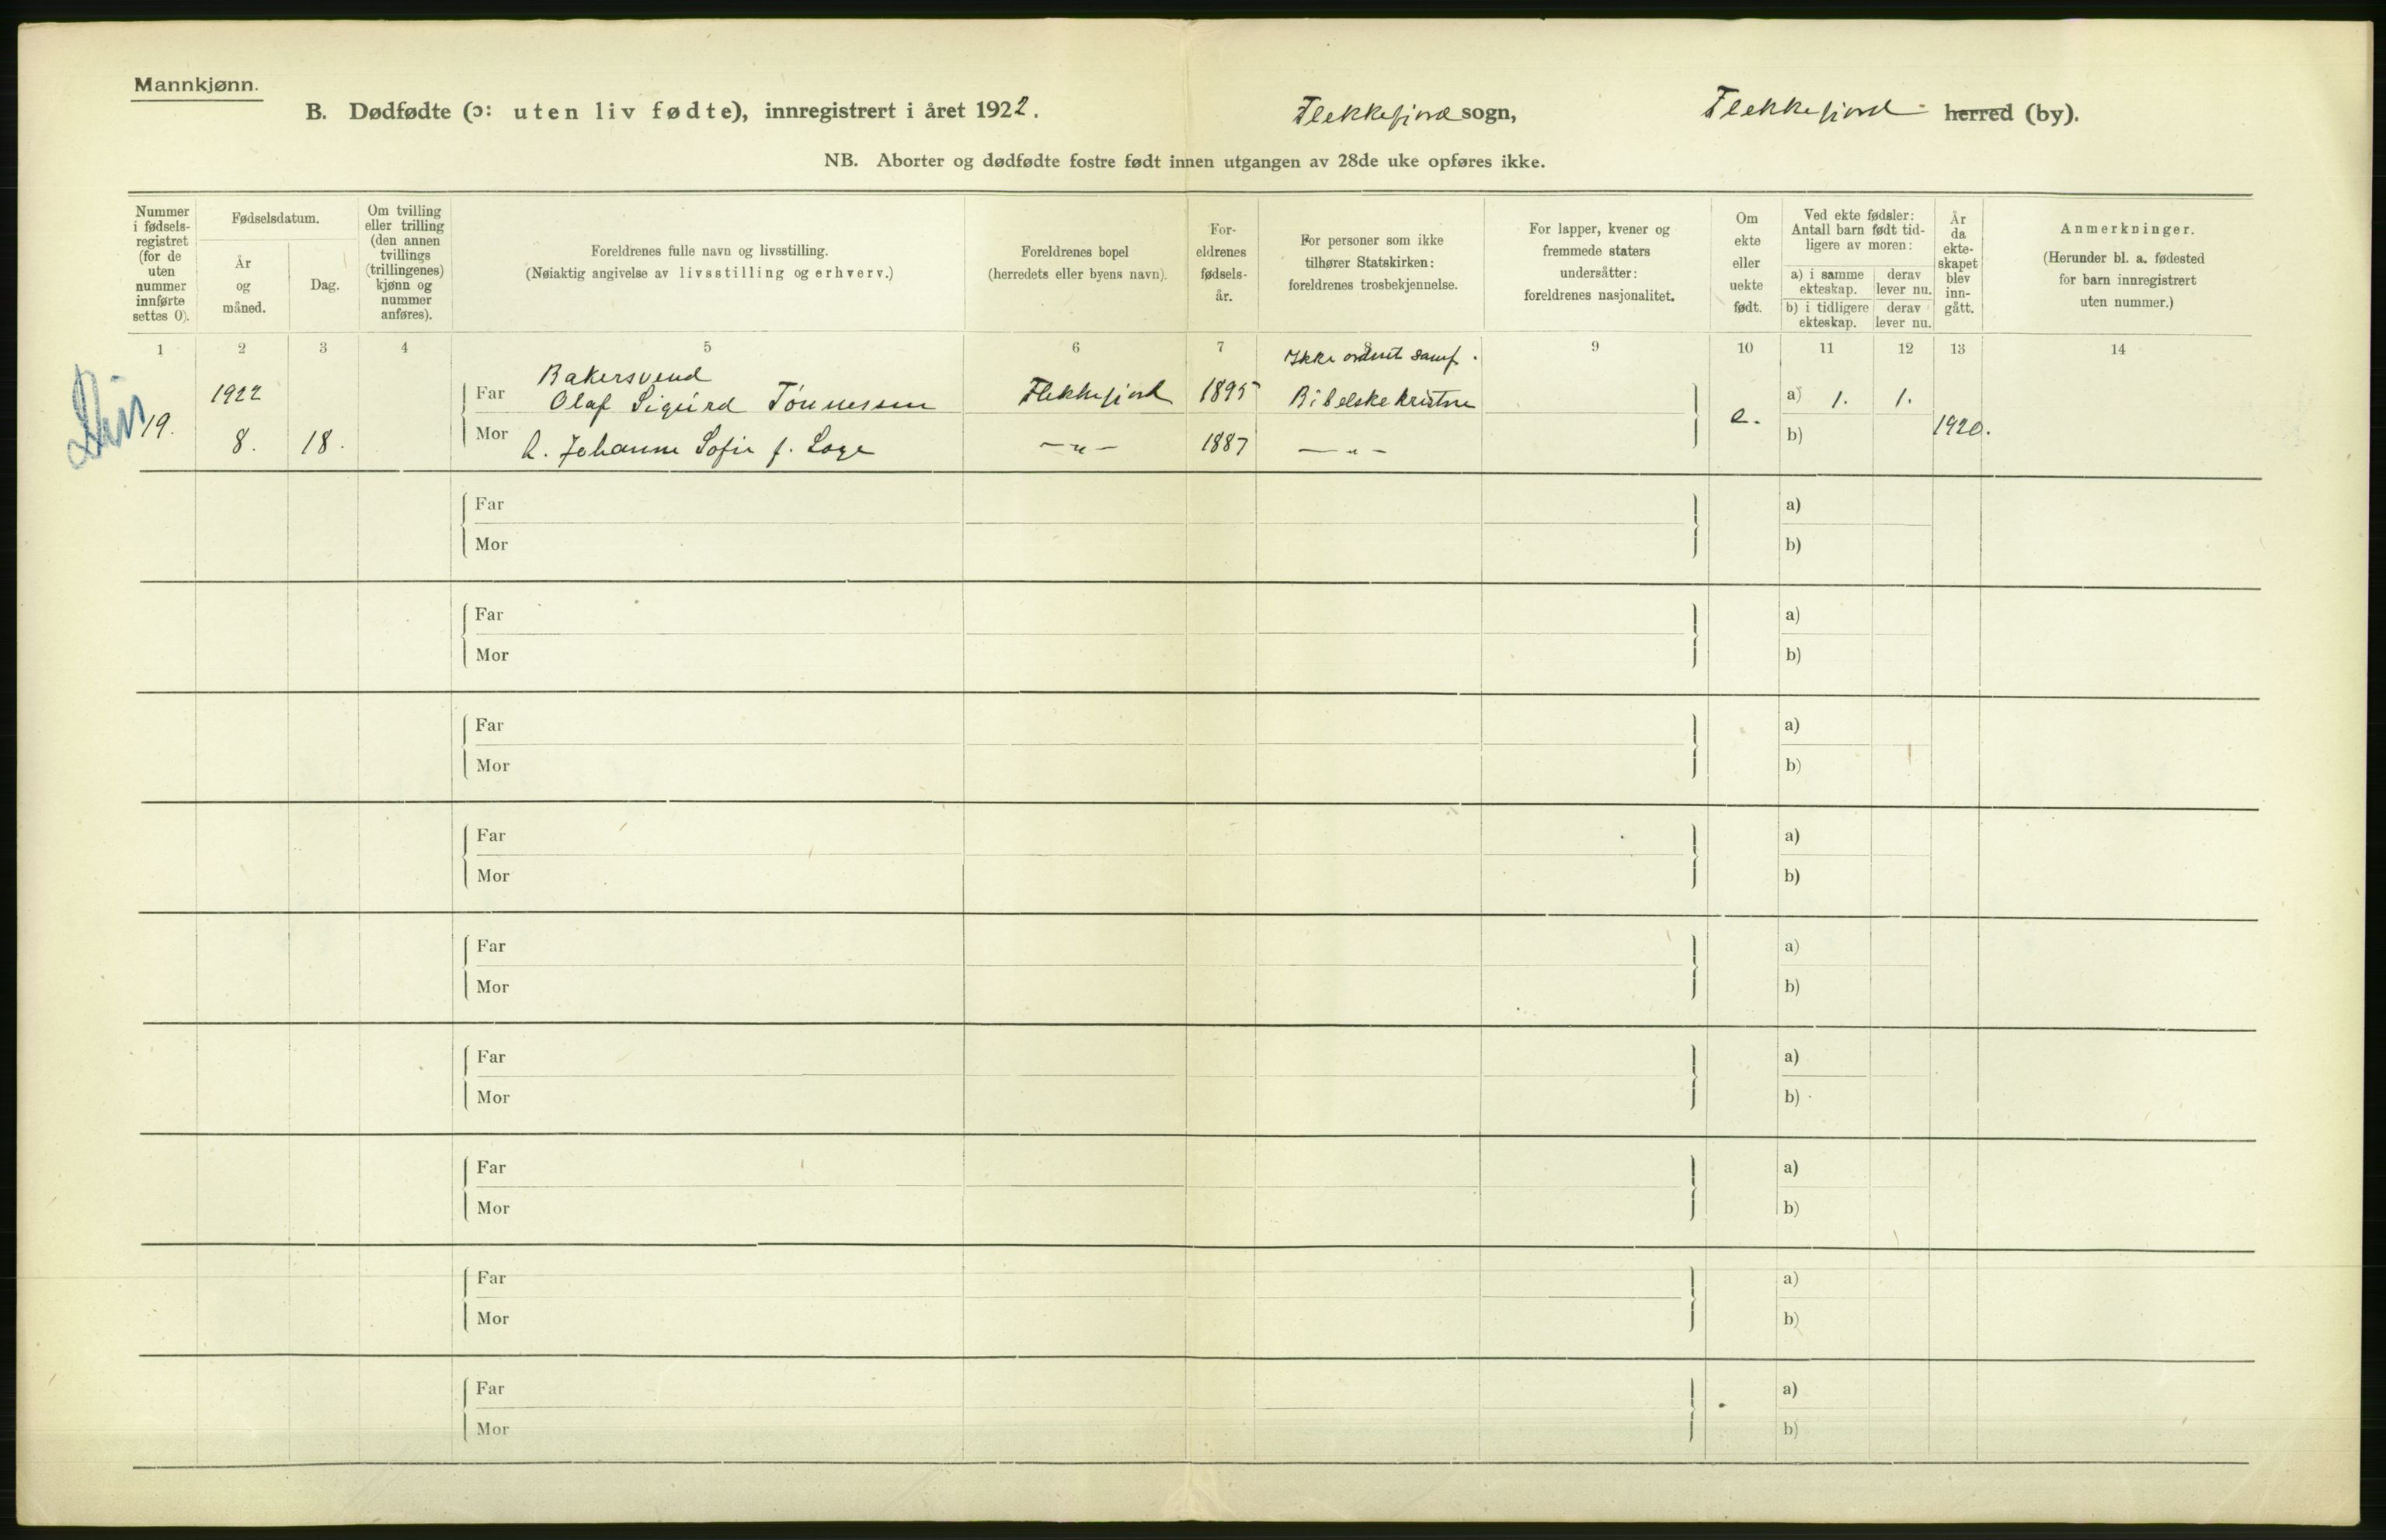 Mannkjønn.
B. Dødfødte (ɔ: uten liv fødte), innregistrert i året 1922. Flekkefjord sogn, Flekkefjord herred (by).
NB. Aborter og dødfødte fostre født innen utgangen av 28de uke opføres ikke.
Nummer i fødsels-registret (for de uten nummer innførte settes 0).
Fødselsdatum.
År og måned.
Dag.
Om tvilling eller trilling (den annen tvillings (trillingenes) kjønn og nummer anføres).
Foreldrenes fulle navn og livsstilling.
(Nøiaktig angivelse av livsstilling og erhverv.)
Foreldrenes bopel
(herredets eller byens navn).
For-eldrenes fødsels-år.
For personer som ikke tilhører Statskirken: foreldrenes trosbekjennelse.
For lapper, kvener og fremmede staters undersåtter: foreldrenes nasjonalitet.
Om ekte eller uekte født.
Ved ekte fødsler: Antall barn født tid-ligere av moren:
a) i samme ekteskap.
derav lever nu.
b) i tidligere ekteskap.
derav lever nu.
År da ekte-skapet blev inn-gått.
Anmerkninger.
(Herunder bl. a. fødested for barn innregistrert uten nummer.)
1 2 3 4 5 6 7 8 9 10 11 12 13 14
Ikke ordnet samf.
Bakersvend
1922 Far Olaf Sigurd Tønnessen Flekkefjord 1895 Bibelske kristne a) 1. 1.
19. e. 1920.
8. 18. Mor Johanne Sofie f. Loge —„— 1887 —„— b)
Far a)
Mor b)
Far a)
Mor b)
Far a)
Mor b)
Far a)
Mor b)
Far a)
Mor b)
Far a)
Mor b)
Far a)
Mor b)
Far a)
Mor b)
Far a)
Mor b)